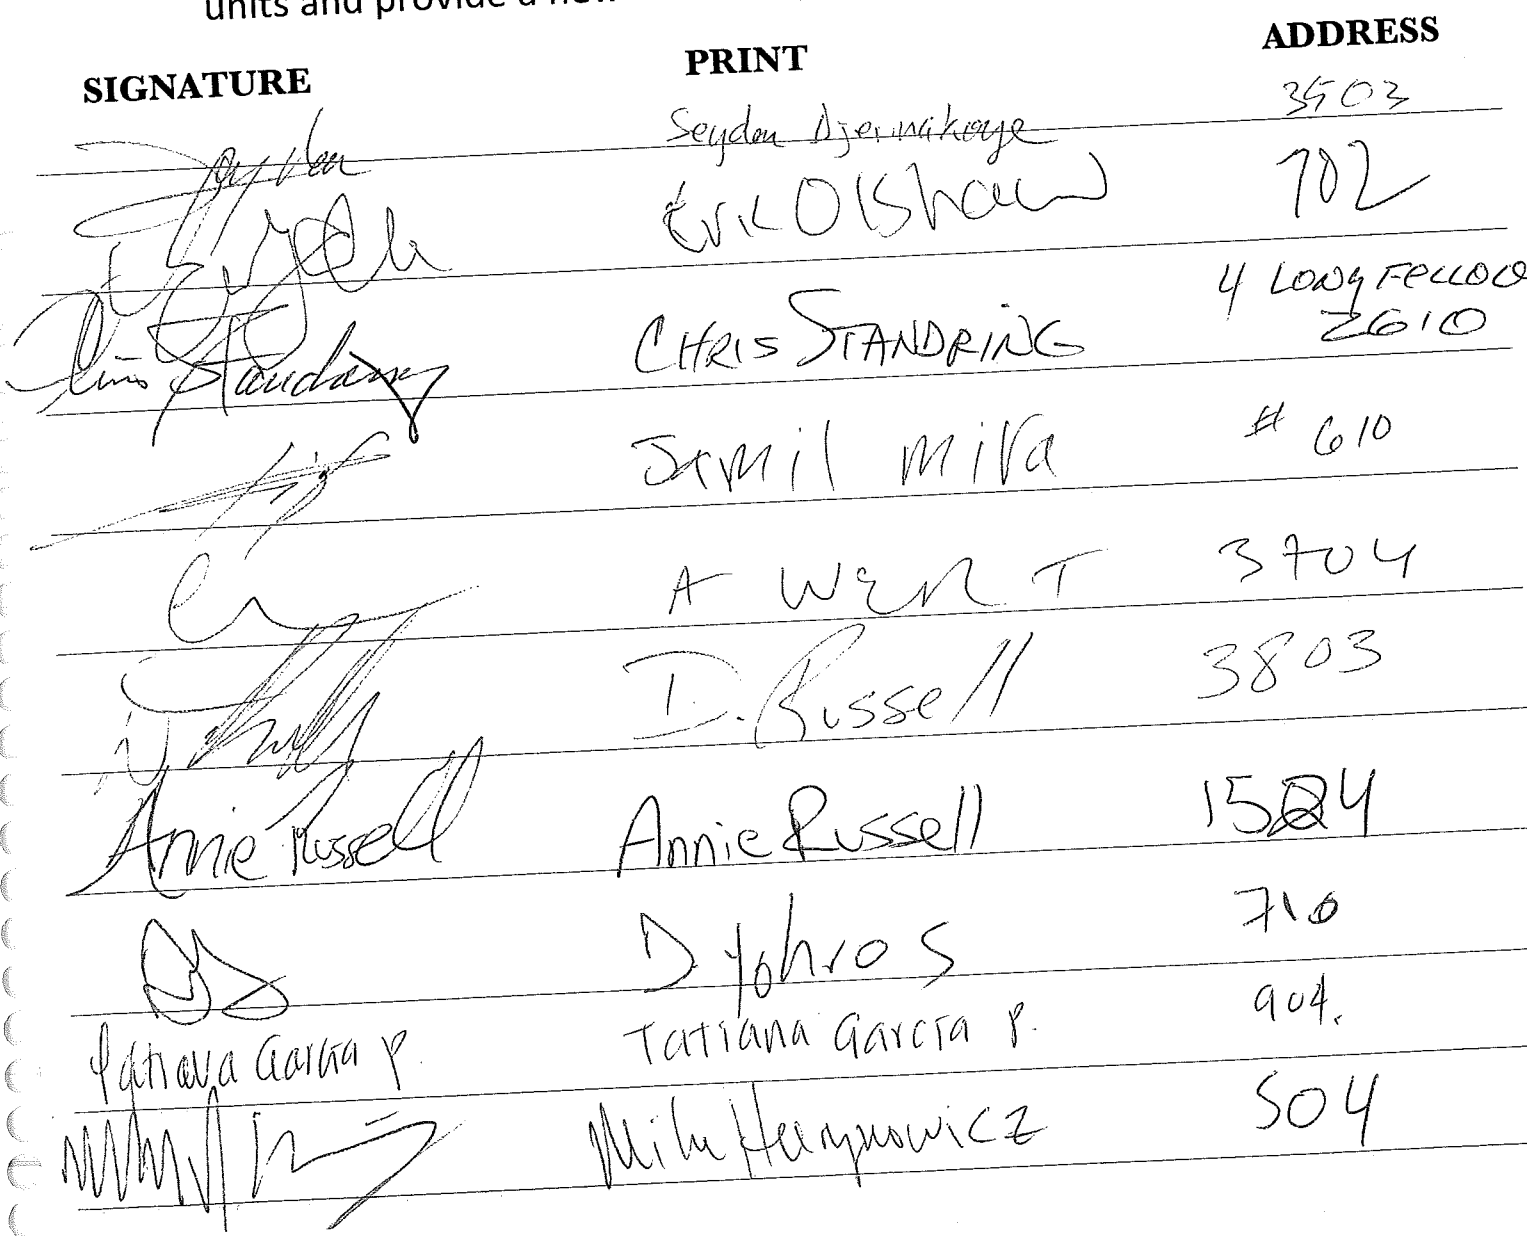 units and provide a
SIGNATURE PRINT ADDRESS
Seydou Djermakoye 3503
Erik Olshaw 702
4 LONGFELLOW
Chris Standring CHRIS STANDRING 2610
Jamil Mira # 610
A WERT 3704
D. Russell 3803
Annie Russell Annie Russell 1524
D yohros 710
Tatiana García P. Tatiana García P. 904.
Mike 504